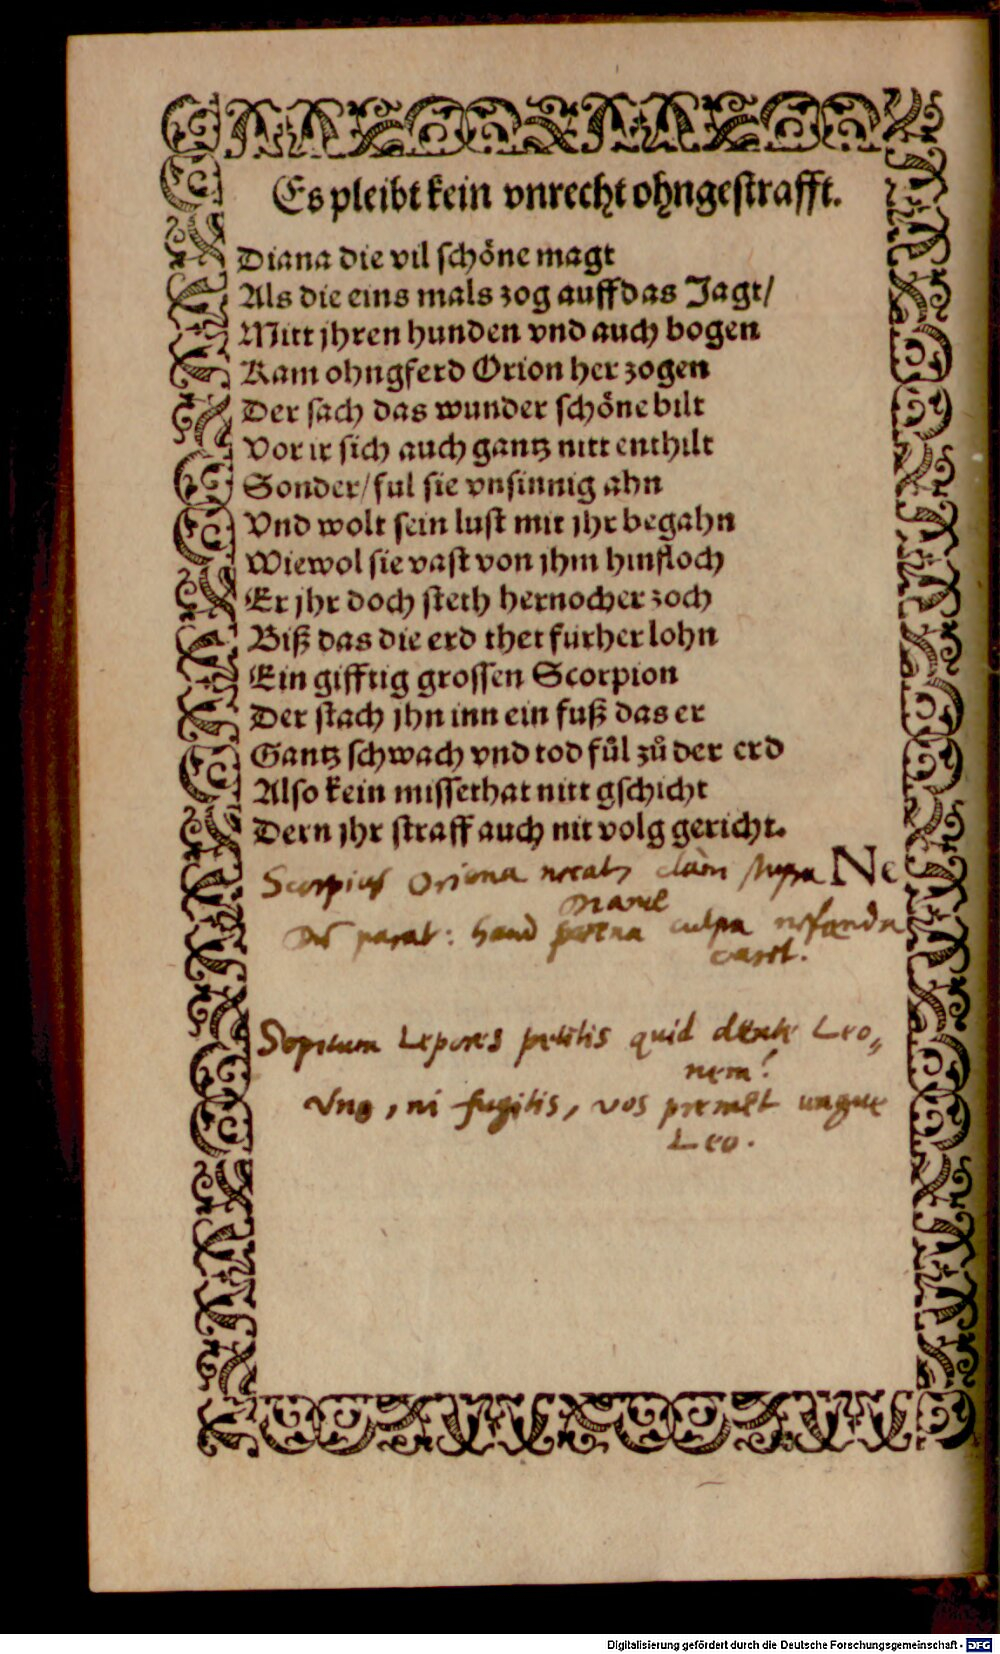 Es pleibt kein vnrecht ohngestrafft.
Diana die vil schöne magt
Als die eins mals zog auff das Jagt/
Mitt jhren hunden vnd auch bogen
Kam ohngferd Orion her zogen
Der sach das wunder schöne bilt
Vor ir sich auch gantz nitt enthilt
Sonder/ ful sie vnsinnig ahn
Vnd wolt sein lust mit jhr begahn
Wiewol sie vast von jhm hinfloch
Er jhr doch steth hernocher zoch
Biß das die erd thet furher lohn
Ein gifftig grossen Scorpion
Der stach jhn inn ein fuß das er
Gantz schwach vnd tod fůl zů der erd
Also kein missethat nitt gschicht
Dern jhr straff auch nit volg gericht.
Ne
Scorpius Oriona necat, clàm stupra
Dianae
parat: haud poena culpa nefanda
caret.
Sopitum Lepores petitis quid dente Leo„
nem?
Vno, ni fugitis, vos premet ungue
Leo.
Digitalisierung gefördert durch die Deutsche Forschungsgemeinschaft - DFG